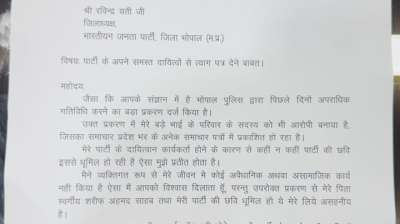 श्री रविन्द्र यती जी
जिलाध्यक्ष,
भारतीयग जनता पार्टी, जिला भोपाल (म.प्र.)
विषयः पार्टी के अपने समस्त दायित्वों से त्याग पत्र देने बाबत।
महोदय,
जैसा कि आपके संज्ञान में है भोपाल पुलिस द्वारा पिछले दिनों अपराधिक
गतिविधि करने का बड़ा प्रकरण दर्ज किया है।
उक्त प्रकरण में मेरे बड़े भाई के परिवार के सदस्य को भी आरोपी बनाया है,
जिसका समाचार प्रदेश भर के अनेक समाचार पत्रों में प्रकाशित हो रहा है।
मेरे पार्टी के दायित्वान कार्यकर्ता होने के कारण से कहीं न कहीं पार्टी की छवि
इससे धूमिल हो रही है ऐसा मुझे प्रतीत होता है।
मैने व्यक्तिगत रूप से मेरे जीवन मे कोई अवैधानिक अथवा असामाजिक कार्य
नही किया है ऐसा में आपको विश्वास दिलाता हूँ, परन्तु उपरोक्त प्रकरण से मेरे पिता
स्वर्गीय शरीफ अहमद साहब तथा मेरी पार्टी की छवि धूमिल हो ये मेरे लिये असहनीय
है।